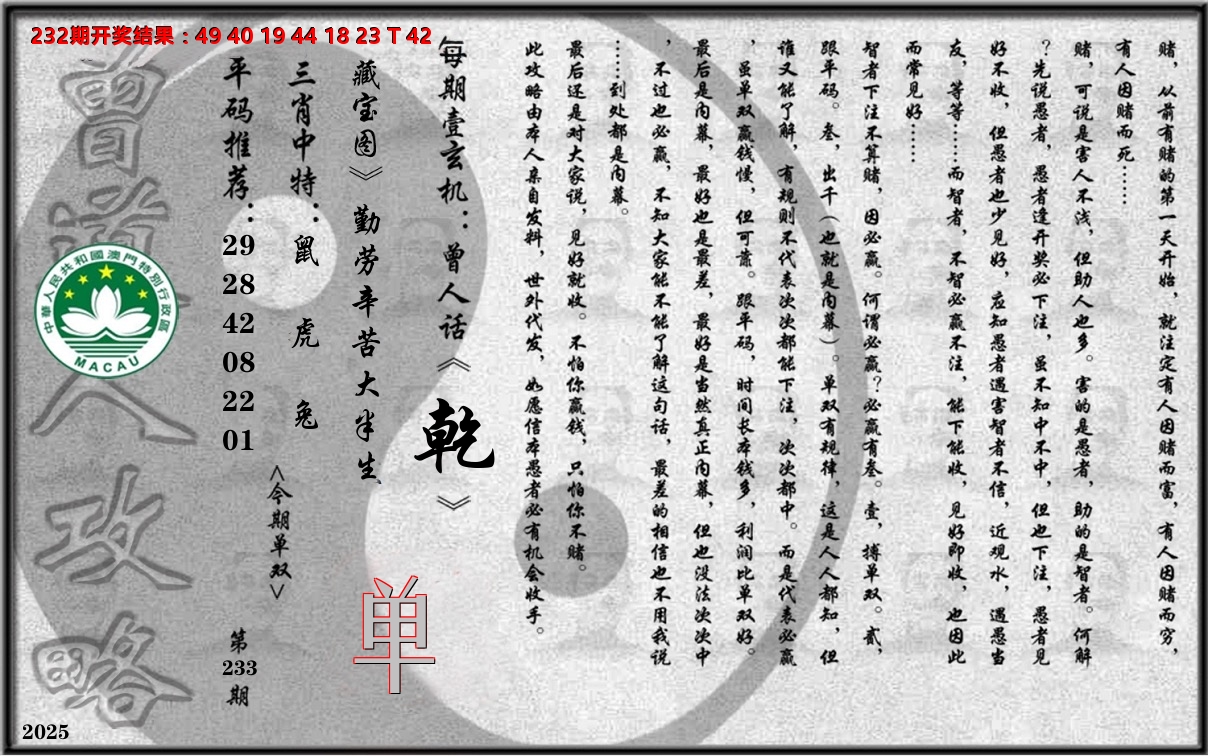 232期开奖结果：49 40 19 44 18 23 T 42
赌，从前有赌的第一天开始，就注定有人因赌而富，有人因赌而穷，
有人因赌而死……
赌，可说是害人不浅，但助人也多。害的是愚者，助的是智者。何解
？先说愚者，愚者逢开奖必下注，虽不知中不中，但也下注，愚者见
好不收，但愚者也少见好，应知愚者遇害智者不信，近观水，遇愚当
友，等等……而智者，不智必赢不注，能下能收，见好即收，也因此
而常见好……
智者下注不算赌，因必赢。何谓必赢？必赢有叁。壹，搏单双。贰，
跟平码。叁，出千（也就是内幕）。单双有规律，这是人人都知，但
谁又能了解，有规则不代表次次都能下注，次次都中。而是代表必赢
，虽单双赢钱慢，但可靠。跟平码，时间长本钱多，利润比单双好。
最后是内幕，最好也是最差，最好是当然真正内幕，但也没法次次中
，不过也必赢，不知大家能不能了解这句话，最差的相信也不用我说
……到处都是内幕。
最后还是对大家说，见好就收。不怕你赢钱，只怕你不赌。
此攻略由本人亲自发料，世外代发，如愿信本愚者必有机会收手。
每期壹玄机：曾人话《乾》
藏宝图》勤劳辛苦大半生
单
三肖中特：鼠 虎 兔
<今期单双>
平码推荐：29 28 42 08 22 01
第233期
曾道人攻略
中華人民共和國澳門特別行政區
MACAU
2025